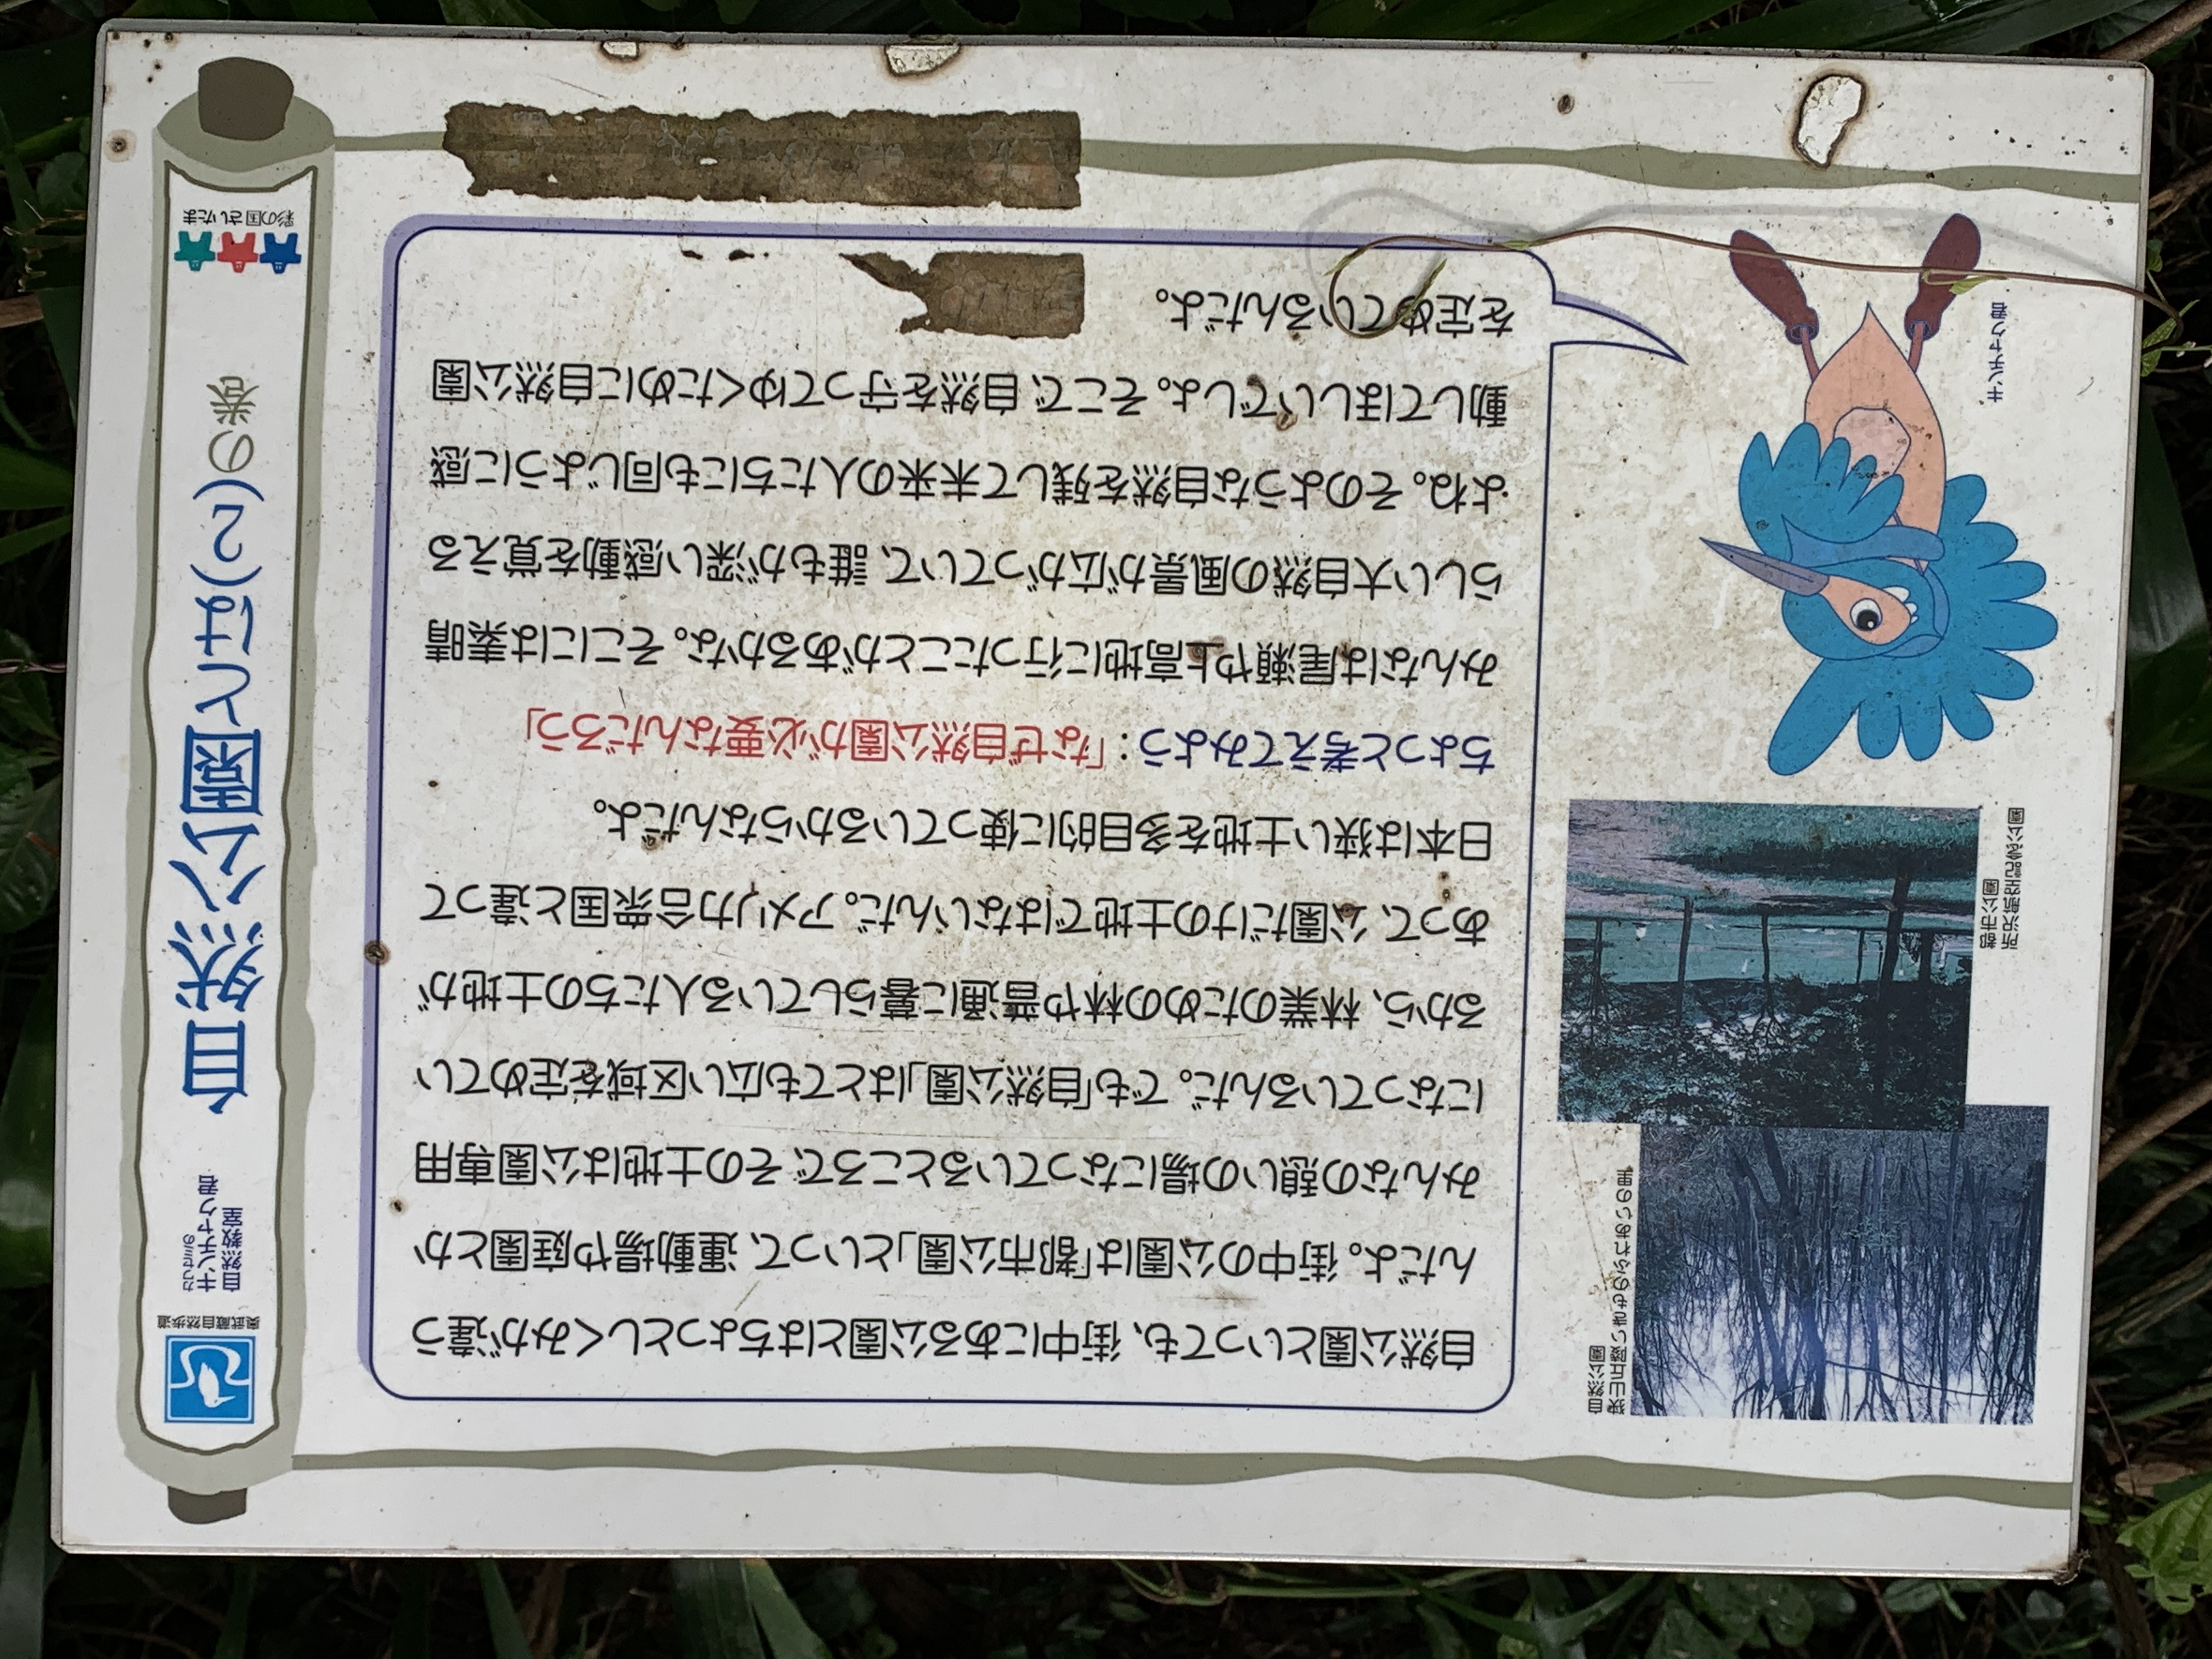 奥武蔵自然歩道
カワセミの
キンチャク君
自然教室
自然公園とは(2)の巻
彩の国さいたま
自然公園といっても、街中にある公園とはちょっとしくみが違う
んだよ。街中の公園は「都市公園」といって、運動場や庭園とか
みんなの憩いの場になっているところで、その土地は公園専用
になっているんだ。でも「自然公園」はとても広い区域を定めてい
るから、林業のための林や普通に暮らしている人たちの土地が
あって、公園だけの土地ではないんだ。アメリカ合衆国と違って
日本は狭い土地を多目的に使っているからなんだよ。
ちょっと考えてみよう：「なぜ自然公園が必要なんだろう」
みんなは尾瀬や上高地に行ったことがあるかな。そこには素晴
らしい大自然の風景が広がっていて、誰もが深い感動を覚える
よね。そのような自然を残して未来の人たちにも同じように感
動してほしいでしょ。そこで、自然を守ってゆくために自然公園
を定めているんだよ。
自然公園
狭山丘陵いきものふれあいの里
都市公園
所沢航空記念公園
キンチャク君